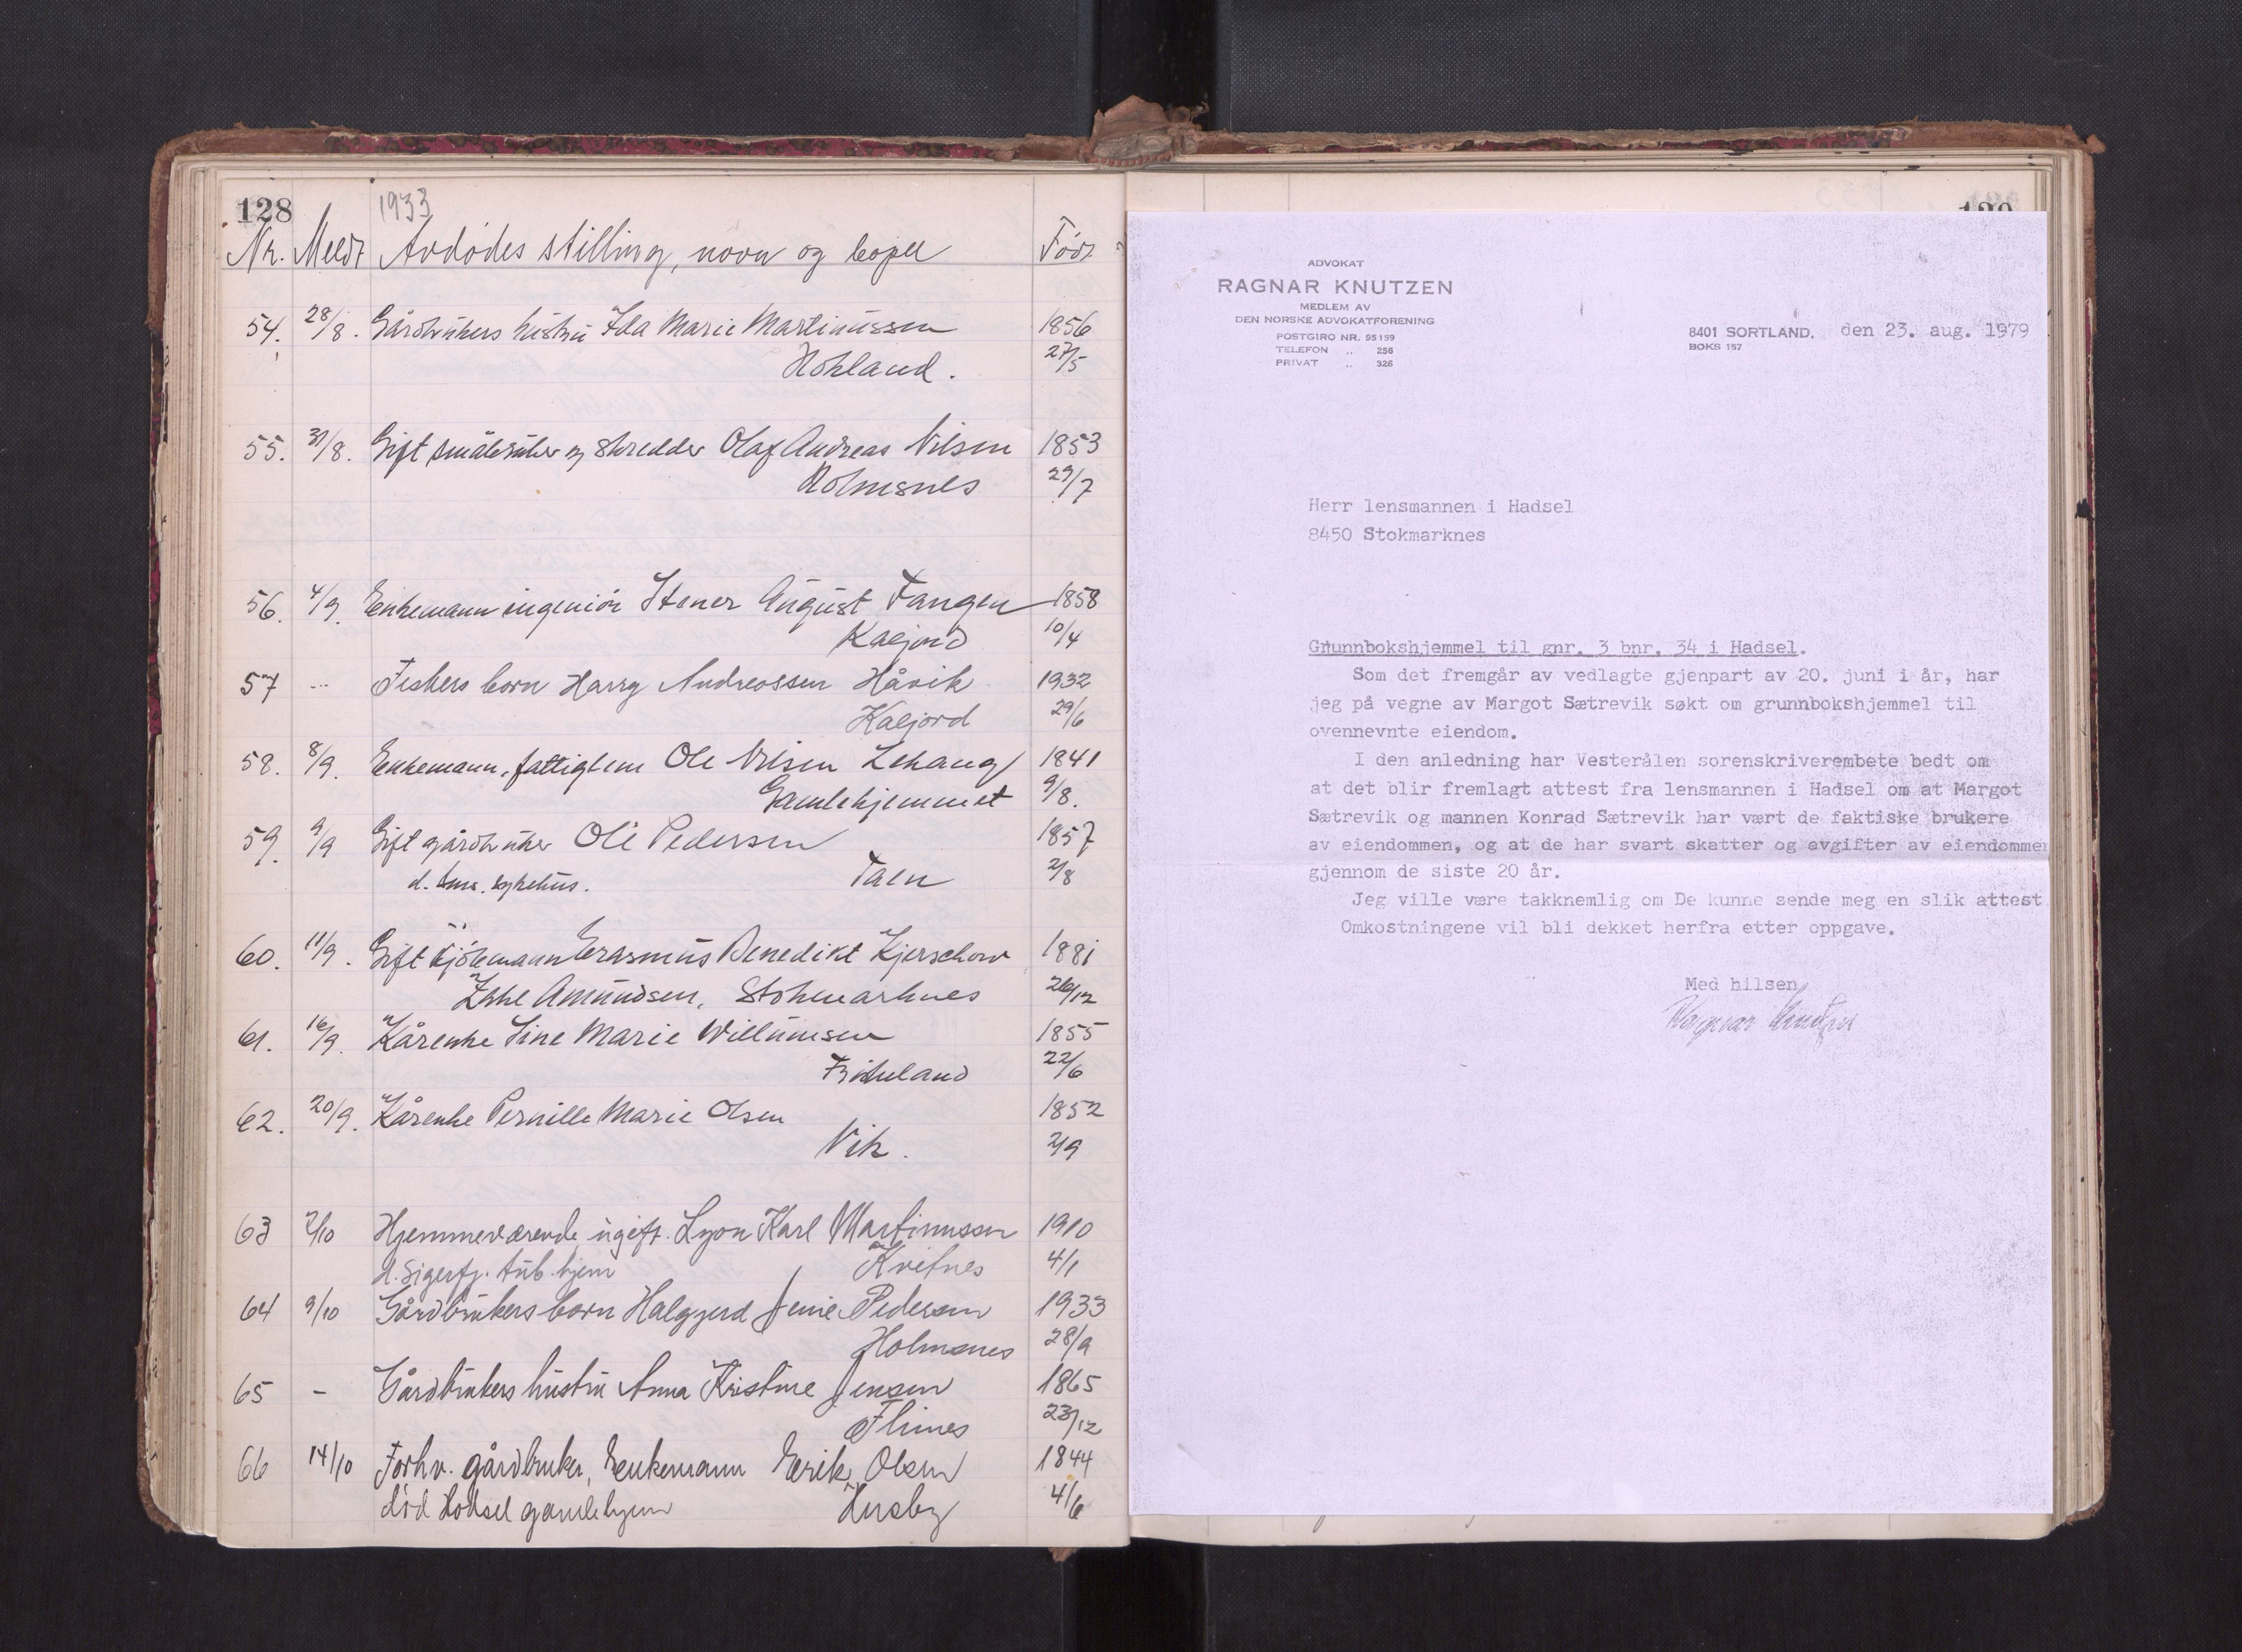 128
1933
Nr. Meldt Avdødes stilling, navn og bopel Født
54. 28/8. Gårdbrukers hustru Ida Marie Martinussen 1856
Hokland. 27/5
55. 31/8. Gift småbruker og skredder Olaf Andreas Nilsen 1853
Holmsnes 29/7
56. 4/9. Enkemann ingeniør Stener August Fangen 1858
Kaljord 10/4
57 --- Fiskers barn Harry Andreassen Håvik 1932
Kaljord 29/6
58. 8/9. Enkemann, fattiglem Ole Nilsen Lehaug 1841
Gamlehjemmet 9/8.
59. 9/9 Gift gårdbruker Ole Pedersen 1857
d. sykehus. Taen 2/8
60. 11/9. Gift Erasmus Benedikt Kjerschow 1881
Zahl Amundsen, Stokmarknes 26/12
61. 16/9. Kårenke Sine Marie Willumsen 1855
22/6
62. 20/9. Kårenke Pernille Marie Olsen 1852
Vik. 2/9
63 2/10 Hjemmeværende ugift. Lyon Karl Martinussen 1910
d. Sigerfj. tub. hjem Kvitnes 4/1
64 9/10 Gårdbrukers barn Halgjerd Jenie Pedersen 1933
Holmsnes 28/9
65 - Gårdbrukers hustru Anna Kristine Jensen 1865
Flines 23/12
66 14/10 Forhv. gårdbruker, Enkemann Erik Olsen 1844
død Hadsel gamlehjem Husby 4/6
ADVOKAT
RAGNAR KNUTZEN
MEDLEM AV
DEN NORSKE ADVOKATFORENING
POSTGIRO NR. 95159
TELEFON „ 256
PRIVAT „ 326
8401 SORTLAND, den 23. aug. 1979
BOKS 157
Herr lensmannen i Hadsel
8450 Stokmarknes
Grunnbokshjemmel til gnr. 3 bnr. 34 i Hadsel.
Som det fremgår av vedlagte gjenpart av 20. juni i år, har
jeg på vegne av Margot Sætrevik søkt om grunnbokshjemmel til
ovennevnte eiendom.
I den anledning har Vesterålen sorenskriverembete bedt om
at det blir fremlagt attest fra lensmannen i Hadsel om at Margot
Sætrevik og mannen Konrad Sætrevik har vært de faktiske brukere
av eiendommen, og at de har svart skatter og avgifter av eiendommen
gjennom de siste 20 år.
Jeg ville være takknemlig om De kunne sende meg en slik attest
Omkostningene vil bli dekket herfra etter oppgave.
Med hilsen
Ragnar Knutzen